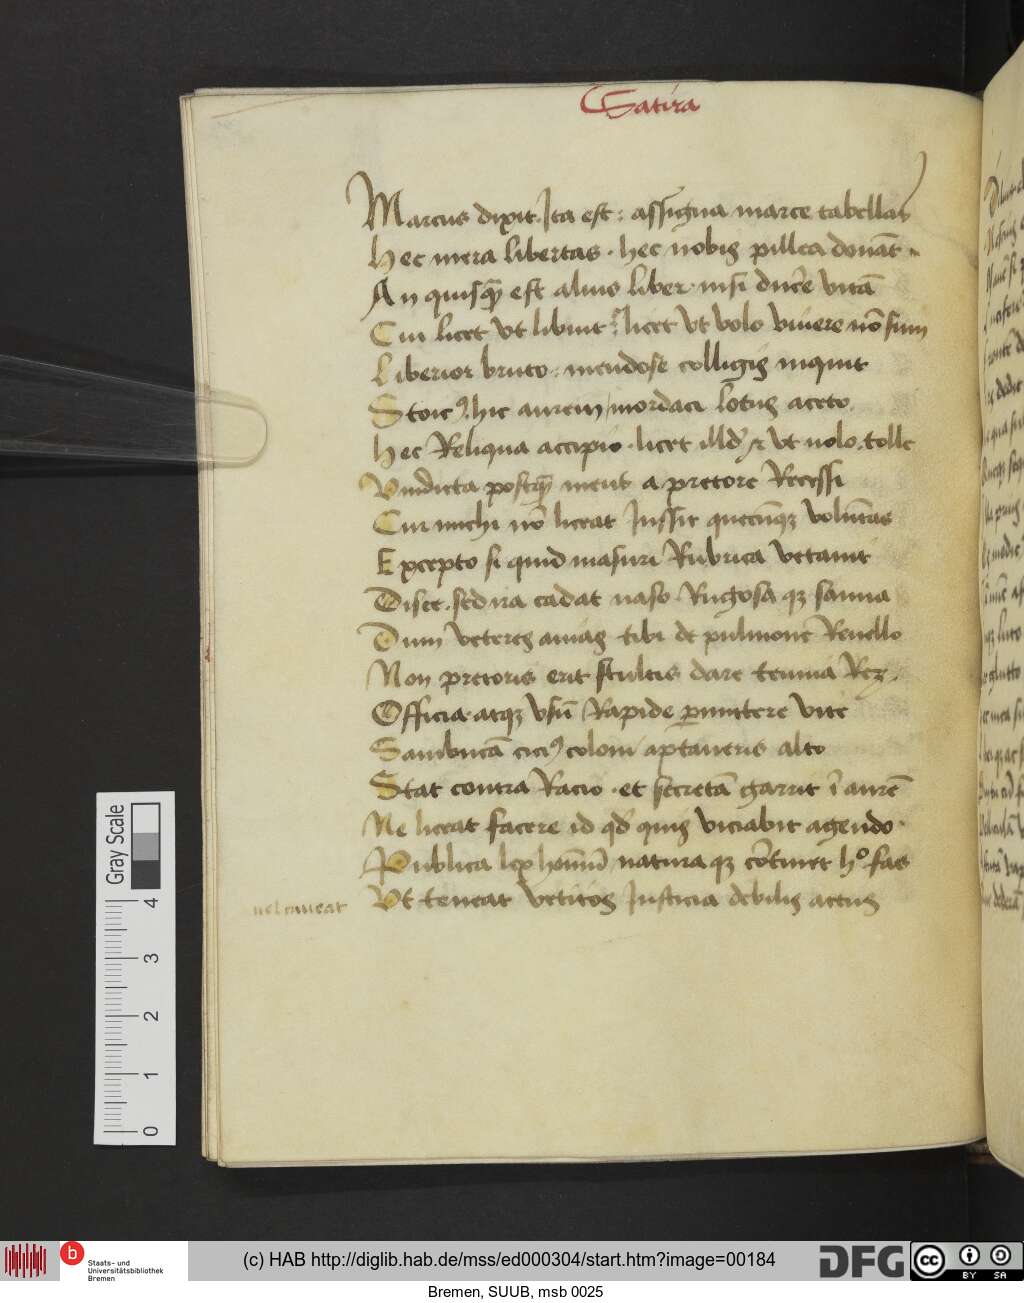 Satira
Marcus dixit. Ita est : assigna marce tabellas
Hec mera libertas · hec nobis pillea donāt ·
An quisq̄ est alius liber · nisi ducĕ vitā
Cui licet vt libuit : licet vt volo viuere nō sim
Liberior bruto : mendose colligis inquit
Stoicꝰ. hic aurem mordaci lotus aceto.
Hec Reliqua accipio · licet illd' & vt uolo . tolle
Vindicta postq̄ meus a pretore Recessi
Cur michi nō liceat Iussit quecūqꝫ volūtas
Excepto si quid masuri Rubrica vetauit
Disce . sed ira cadat naso Rugosa qꝫ sanna
Dum veteres auias tibi de pulmone Reuello
Non pretoris erit stultis dare tenuia Reꝫ .
Officia · atqꝫ vsū Rapide ꝑmittere vite
Sambucā cicꝰ coloni aptaueris alto
Stat contra Racio · et secretā garrit ī aurē
Ne liceat facere id qđ quis viciabit agendo ·
Publica lex hoīm natura qꝫ cōtinet hᵒ . fas
Vt teneat vetitos Iusticia debilis actus
uel caueat
Gray Scale
4
3
2
1
0
Staats- und
Universitätsbibliothek
Bremen
(c) HAB http://diglib.hab.de/mss/ed000304/start.htm?image=00184
DFG
cc
BY SA
Bremen, SUUB, msb 0025